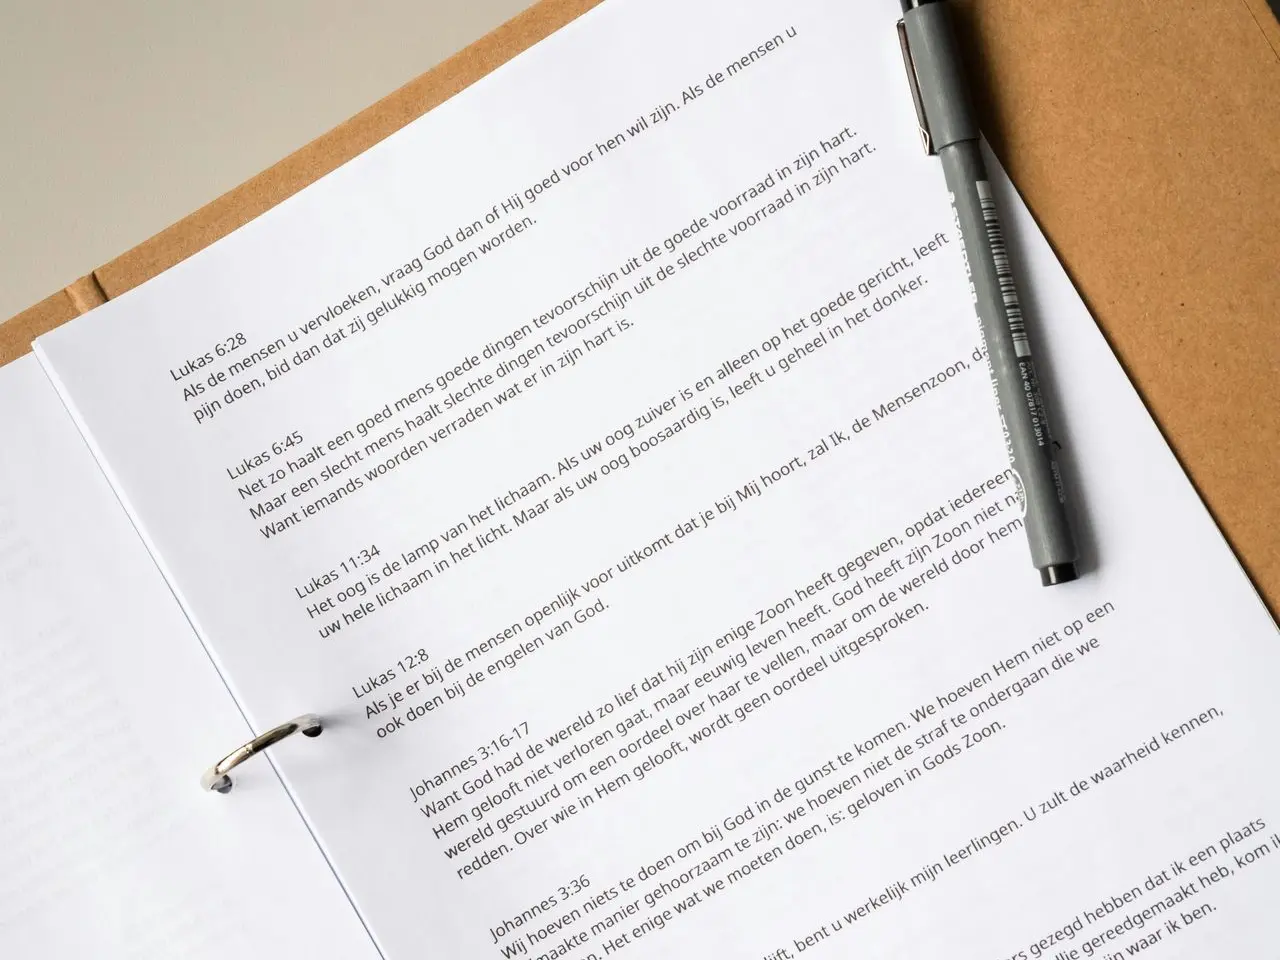 Lukas 6:28
Als de mensen u vervloeken, vraag God dan of Hij goed voor hen wil zijn. Als de mensen u
pijn doen, bid dan dat zij gelukkig mogen worden.
Lukas 6:45
Net zo haalt een goed mens goede dingen tevoorschijn uit de goede voorraad in zijn hart.
Maar een slecht mens haalt slechte dingen tevoorschijn uit de slechte voorraad in zijn hart.
Want iemands woorden verraden wat er in zijn hart is.
Lukas 11:34
Het oog is de lamp van het lichaam. Als uw oog zuiver is en alleen op het goede gericht, leeft
uw hele lichaam in het licht. Maar als uw oog boosaardig is, leeft u geheel in het donker.
Lukas 12:8
Als je er bij de mensen openlijk voor uitkomt dat je bij Mij hoort, zal Ik, de Mensenzoon,
ook doen bij de engelen van God.
Johannes 3:16-17
Want God had de wereld zo lief dat hij zijn enige Zoon heeft gegeven, opdat iedereen
Hem gelooft niet verloren gaat, maar eeuwig leven heeft. God heeft zijn Zoon niet
wereld gestuurd om een oordeel over haar te vellen, maar om de wereld door hem
redden. Over wie in Hem gelooft, wordt geen oordeel uitgesproken.
Johannes 3:36
Wij hoeven niets te doen om bij God in de gunst te komen. We hoeven Hem niet op een
maakte manier gehoorzaam te zijn: we hoeven niet de straf te ondergaan die we
Het enige wat we moeten doen, is: geloven in Gods Zoon.
bent u werkelijk mijn leerlingen. U zult de waarheid kennen,
gezegd hebben dat ik een plaats
gereedgemaakt heb, kom
waar ik ben.
EAN 40 07817 013014